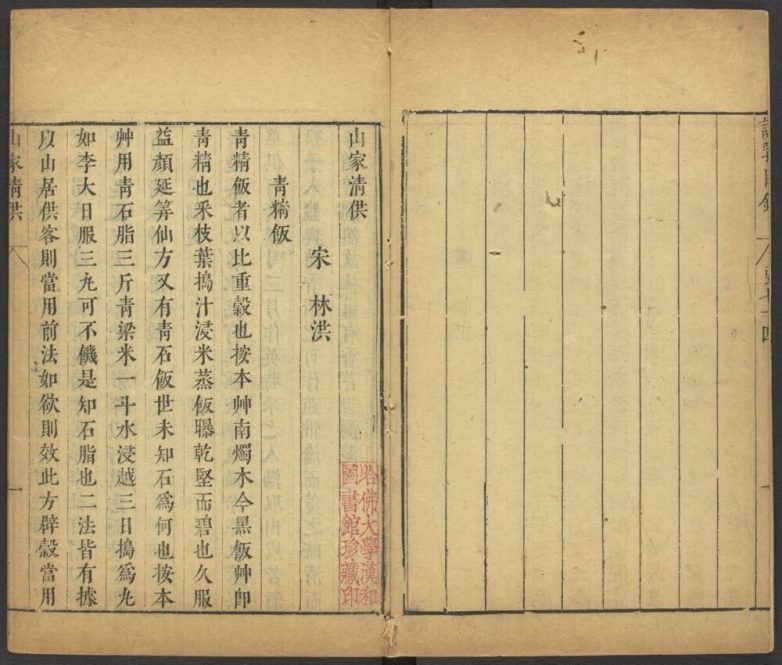 說郛目錄
弓七十四
山家清供
宋 林洪
青精飯
青精飯者以此重穀也按本艸南燭木今黑飯艸卽
青精也采枝葉搗汁浸米蒸飯曝乾堅而碧也久服
益顏延筭仙方又有青石飯世未知石爲何也按本
艸用青石脂三斤青粱米一斗水浸越三日搗爲丸
如李大日服三丸可不饑是知石脂也二法皆有據
以山居供客則當用前法如欲則效此方辟穀當用
山家清供
一
哈佛大學漢和
圖書館珍藏印